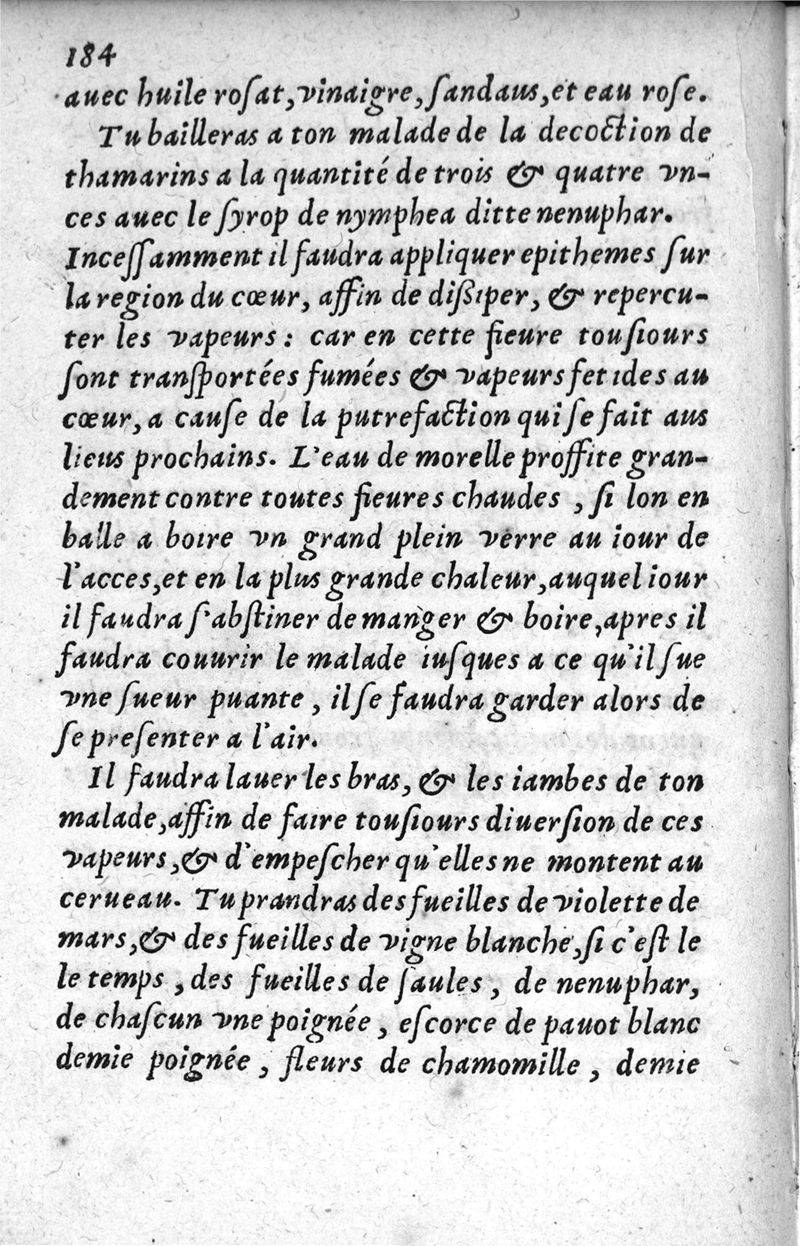 184
auec huile roſat,vinaigre,ſandaus,et eau roſe.
Tu bailleras a ton malade de la decoction de
thamarins a la quantité de trois & quatre vn-
ces auec le ſyrop de nymphea ditte nenuphar.
Inceſſamment il faudra appliquer epithemes ſur
la region du cœur, affin de diſſiper, & repercu-
ter les vapeurs : car en cette fieure touſiours
ſont tranſportées fumées & vapeurs fetides au
cœur, a cauſe de la putrefaction qui ſe fait aus
lieus prochains. L'eau de morelle proffite gran-
dement contre toutes fieures chaudes , ſi lon en
baille a boire vn grand plein verre au iour de
l'acces,et en la plus grande chaleur,auquel iour
il faudra ſ'abſtiner de manger & boire,apres il
faudra couurir le malade iuſques a ce qu'il ſue
vne ſueur puante , il ſe faudra garder alors de
ſe preſenter a l'air.
Il faudra lauer les bras, & les iambes de ton
malade,affin de faire touſiours diuerſion de ces
vapeurs,& d'empeſcher qu'elles ne montent au
cerueau. Tu prandras des fueilles de violette de
mars,& des fueilles de vigne blanche,ſi c'eſt le
le temps , des fueilles de ſaules , de nenuphar,
de chaſcun vne poignée , eſcorce de pauot blanc
demie poignée , fleurs de chamomille , demie